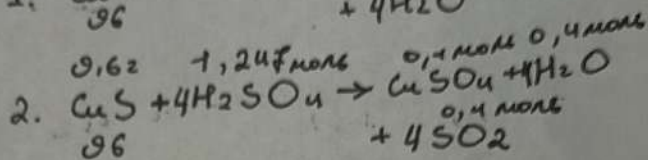 96 + 4H2O
9,62 1,247моль 0,1 моль 0,4моль
2. CuS + 4H2SO4 → CuSO4 + 4H2O
0,4 моль
96 + 4SO2